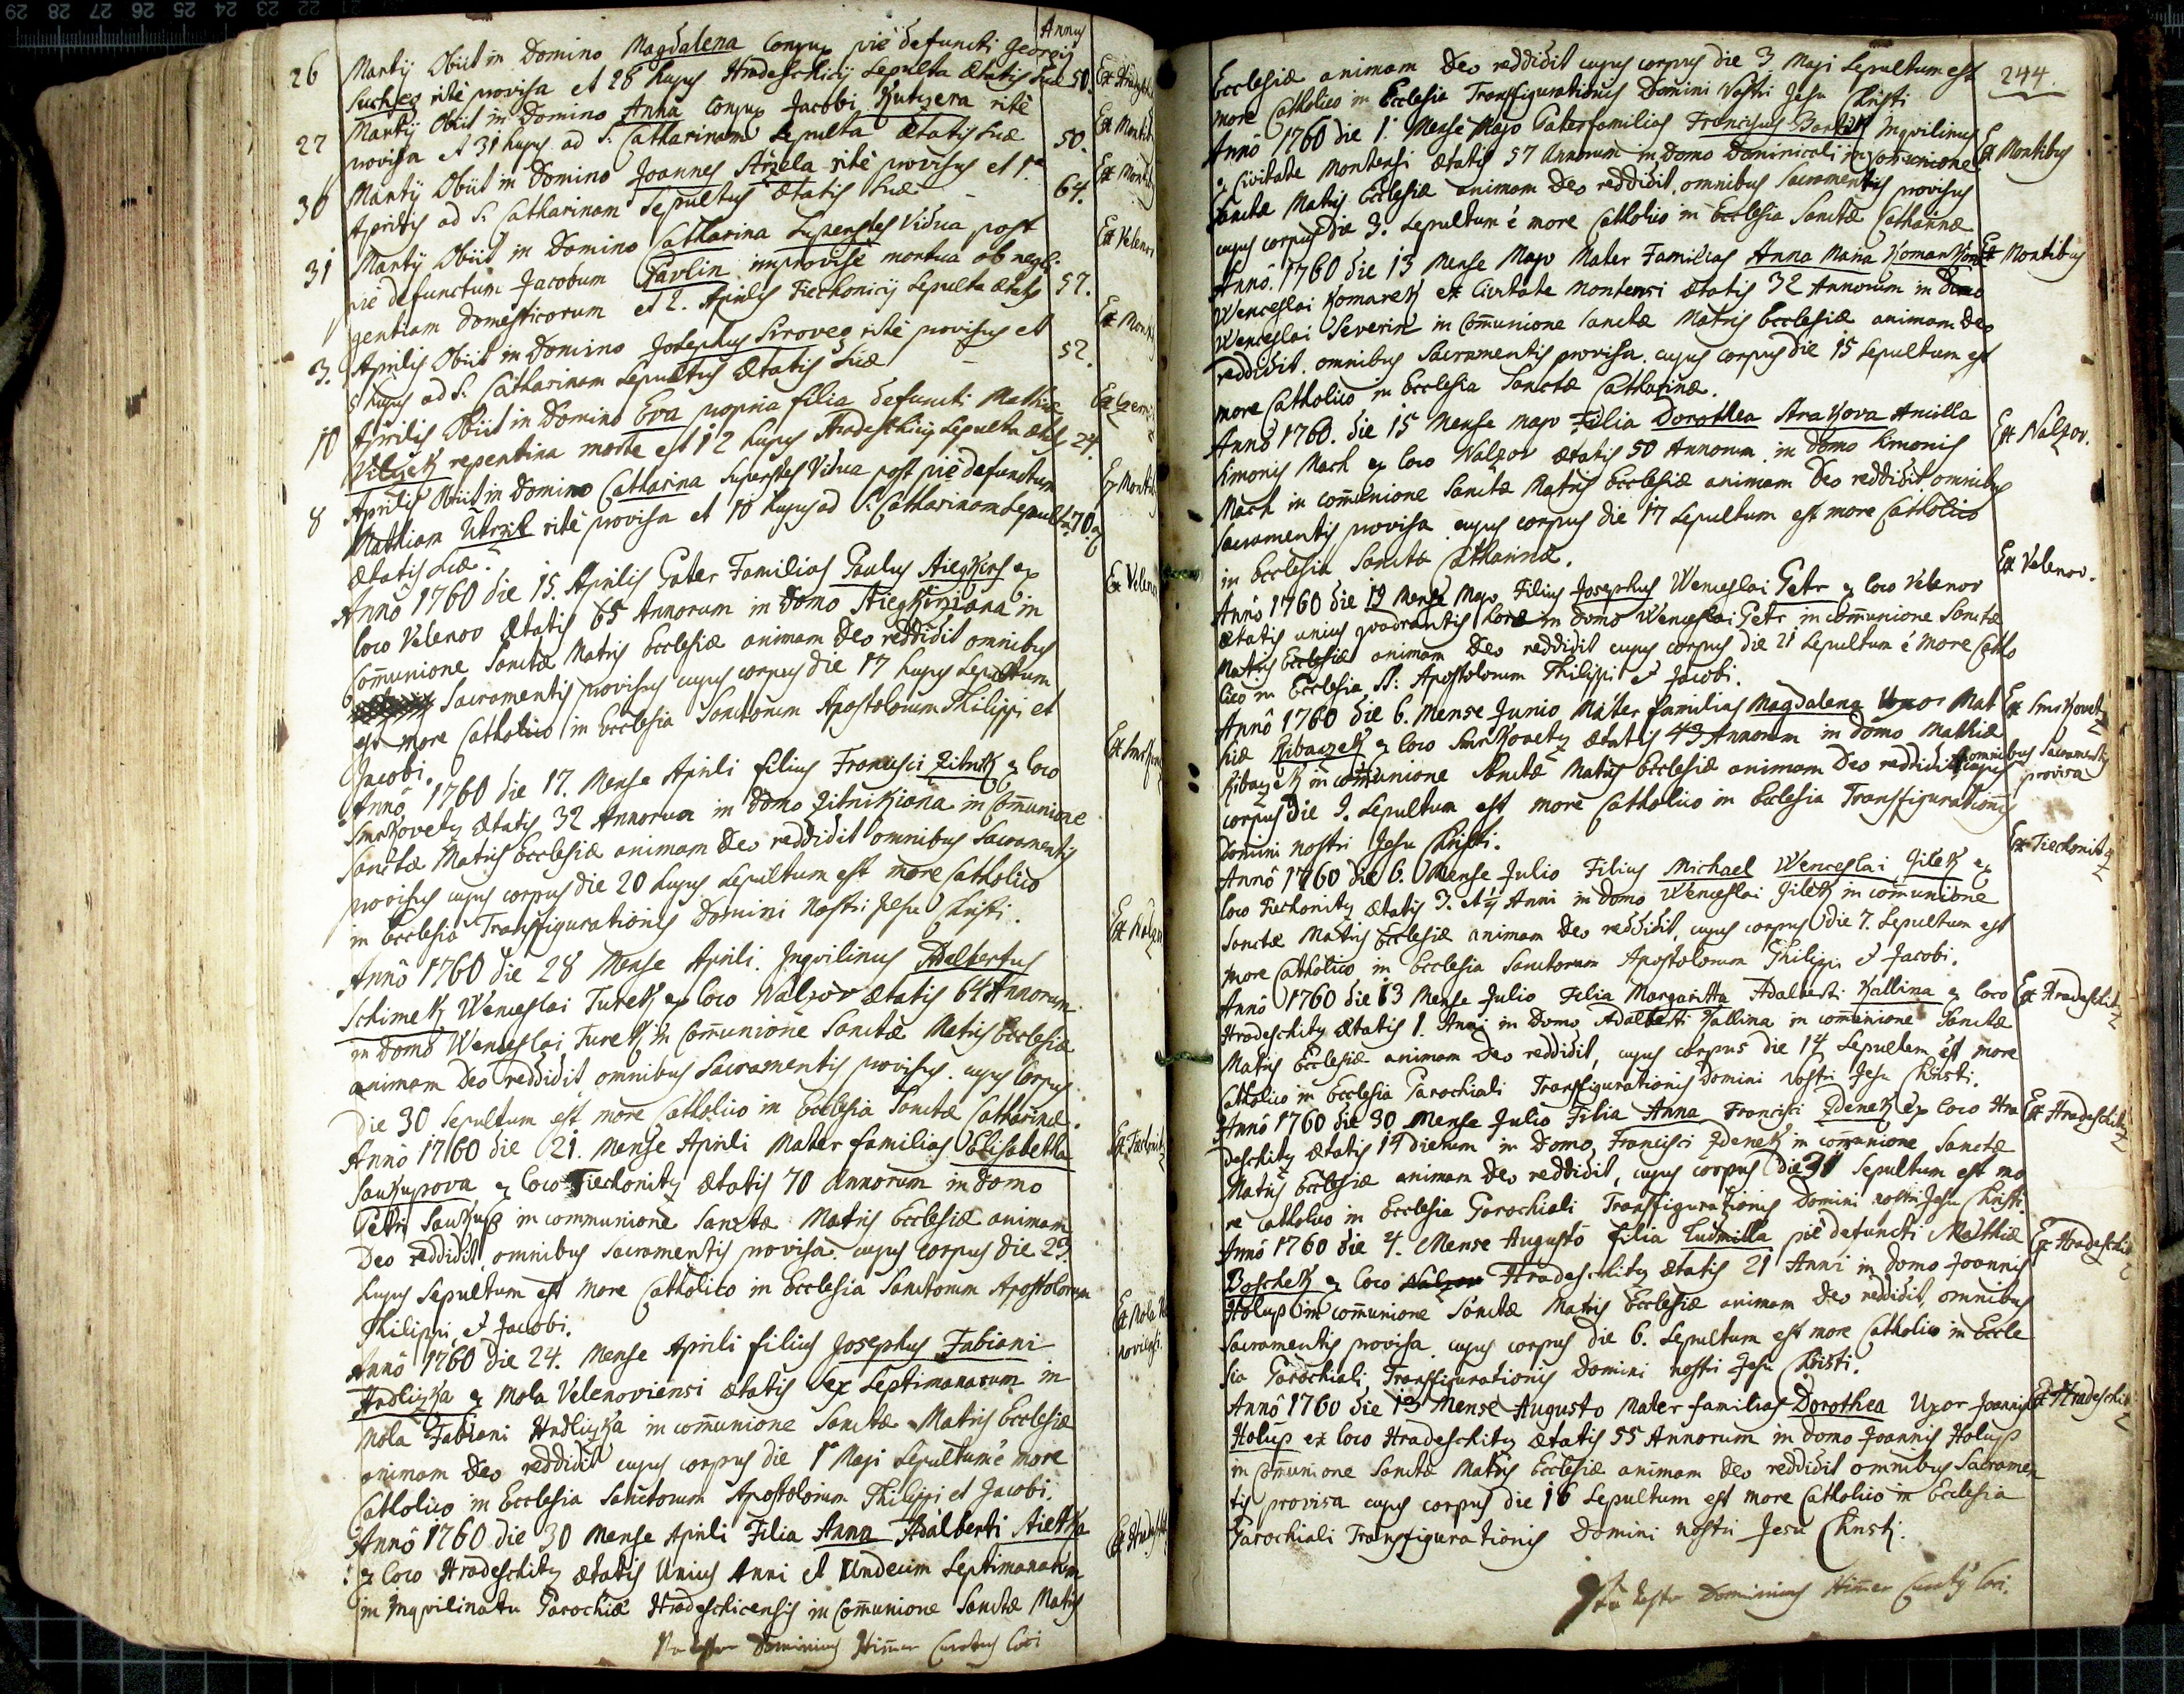 Annus
26 Martij Obiit in Domino Magdalena Conjux pie defuncti Georgij
Suchey rite provisa et 28 hujus Hradeschicij Sepulta Ætatis suæ 50. Ex Hradesch
27 Martij Obiit in Domino Anna Conjux Jacobi Kutzera rite
provisa et 31 hujus ad S. Catharinam Sepulta Ætatis suæ 50. Ex Montib
30 Martij Obiit in Domino Joannes Strzela rite provisus et 1a
Aprilis ad S. Catharinam Sepultus Ætatis suæ 64. Ex Montib
31 Martij Obiit in Domino Catharina Superstes Vidua post
pie defunctum Jacobum Pavlin improvise mortua ob negli
gentiam domesticorum et 2. Aprilis Tiechonicij Sepulta Ætatis 57. Ex Velenov
3. Aprilis Obiit in Domino Josephus Sirovey rite provisus et
5 hujus ad S. Catharinam Sepultus Ætatis suæ 52. Ex Montib
10 Aprilis Obiit in Domino Eva propria filia defuncti Mathiæ
Vilczek repentina morte est 12 hujus Hradeschicij Sepulta Ætatis 24.
8 Aprilis Obiit in Domino Catharina Superstes Vidua post pie defunctum
Mathiam rite provisa et 10 hujus ad S. Catharinam Sepulta 70. Ex Montib
Ætatis suæ.
Anno 1760 die 15. Aprilis Pater Familias Paulus ex
loco Velenov Ætatis 65 Annorum in Domo in
Communione Sanctæ Matris Ecclesiæ animam Deo reddidit omnibus
Sacramentis provisus cujus corpus die 17 hujus Sepultum
est more Catholico in Ecclesia Sanctorum Apostolorum Philippi et
Jacobi. Ex Velenov
Anno 1760 die 17. Mense Aprili filius Francisci Zitnik ex loco
Smrkovetz Ætatis 32 Annorum in Domo Zitnikiana in Communione
Sanctæ Matris Ecclesiæ animam Deo reddidit omnibus Sacramentis
provisus cujus corpus die 20 hujus Sepultum est more Catholico
in Ecclesia Transfigurationis Domini Nostri Jesu Christi.
Anno 1760 die 28 Mense Aprili. Inqvilinus Adalbertus
Schimek Wenceslai Turek ex loco Nalzov Ætatis 64 Annorum
in Domo Wenceslai Turek in Communione Sanctæ Matris Ecclesiæ
animam Deo reddidit omnibus Sacramentis provisus. cujus Corpus
die 30 Sepultum est more Catholico in Ecclesia Sanctæ Catharinæ.
Anno 1760 die 21. Mense Aprili Mater familias Elisabetha
Saukupova ex loco Tiechonitz Ætatis 70 Annorum in Domo
Petri Saukup in communione Sanctæ Matris Ecclesiæ animam
Deo reddidit omnibus Sacramentis provisa. cujus corpus die 23
hujus Sepultum est More Catholico in Ecclesia Sanctorum Apostolorum
Philippi et Jacobi.
Anno 1760 die 24. Mense Aprili filius Josephus Fabiani
Hrdlizka ex Mola Velenoviensi ætatis sex Septimanarum in
Mola Fabiani Hrdlizka in communione Sanctæ Matris Ecclesiæ
animam Deo reddidit cujus corpus die 1a Maji Sepultum e more
Catholico in Ecclesia Sanctorum Apostolorum Philippi et Jacobi.
Anno 1760 die 30 Mense Aprili Filia Anna Adalberti
ex loco Hradeschitz ætatis Unius Anni et Undecim Septimanarum
in Inqvilinatu Parochiæ Hradeschicensis in Communione Sanctæ Matris
Ita testor Dominicus Himer Curatus loci
244
Ecclesiæ animam Deo reddidit cujus corpus die 3 Maji Sepultum est
more Catholico in Ecclesia Transfigurationis Domini Nostri Jesu Christi
Anno 1760 die 1. Mense Majo Paterfamilias Franciscus Inqvilinus
ex Civitate Montensi Ætatis 57 Annorum in Domo Dominicali in communione Ex Montibus
Sanctæ Matris Ecclesiæ animam Deo reddidit, omnibus Sacramentis provisus
cujus corpus die 3. Sepultum e more Catholico in Ecclesia Sanctæ Catharinæ
Anno. 1760 die 13 Mense Majo Mater Familias Anna Maria Ex Montibus
Wenceslai Komarek ex Civitate Montensi ætatis 32 Annorum in Domo
Wenceslai Severin in Communione Sanctæ Matris Ecclesiæ animam Deo
reddidit. omnibus Sacramentis provisa. cujus corpus die 15 Sepultum est
more Catholico in Ecclesia Sanctæ Catharinæ.
Anno 1760. die 15 Mense majo Filia Dorothea Strakova Ancilla
Simonis Mach ex loco Nalzov Ætatis 50 Annorum in Domo Simonis Ex Nalzov.
Mach in communione Sanctæ Matris Ecclesiæ animam Deo reddidit omnibus
Sacramentis provisa cujus corpus die 17 Sepultum est more Catholico
in Ecclesia Sanctæ Catharinæ.
Anno 1760 die 19 Mense Majo Filius Josephus Wenceslai Petr ex loco Velenov Ex Velenov.
ætatis unius qvadrantis horæ in Domo Wenceslai Petr in communione Sanctæ
Matris Ecclesiæ animam Deo reddidit cujus corpus die 21 Sepultum e more Catho
lico in Ecclesia SS: Apostolorum Philippi et Jacobi.
Anno 1760 die 6. Mense Junio Mater familias Magdalena Uxor Mat Ex Smrkovetz
hiæ Ribaczek ex loco Smrkovetz ætatis 43 Annorum in Domo Mathiæ
Ribaczek in communione Sanctæ Matris Ecclesiæ animam Deo reddidit cujus omnibus Sacramentis provisa
corpus die 9. Sepultum est more Catholico in Ecclesia Transfigurationis
Domini nostri Jesu Christi.
Anno 1760 die 6. Mense Julio Filius Michael Wenceslai Jilek ex Ex Tiechonitz
loco Tiechonitz Ætatis Anni in Domo Wenceslai Jilek in communione
Sanctæ Matris Ecclesiæ animam Deo reddidit, cujus corpus die 7. Sepultum est
more Catholico in Ecclesia Sanctorum Apostolorum Philippi et Jacobi.
Anno 1760 die 13 Mense Julio Filia Margaritta Adalberti Kallina ex loco Ex Hradeschitz
Hradeschitz Ætatis 1. Anni in Domo Adalberti Kallina in communione Sanctæ
Matris Ecclesiæ animam Deo reddidit, cujus corpus die 14 Sepultum est more
Catholico in Ecclesia Parochiali Transfigurationis Domini nostri Jesu Christi.
Anno 1760 die 30 Mense Julio Filia Anna Francisci Zdenek ex loco Hra Ex Hradeschitz
deschitz ætatis 14 dierum in Domo Francisci Zdenek in communione Sanctæ
Matris Ecclesiæ animam Deo reddidit, cujus corpus die 31 Sepultum est mo
re catholico in Ecclesia Parochiali Transfigurationis Domini nostri Jesu Christi
Anno 1760 die 4. Mense Augusto filia Ludmilla pie defuncti Mathiæ Ex Hradeschitz
Boschek ex loco Nalzov Hradeschitz ætatis 21 Anni in Domo Joannis
Holup in communione Sanctæ Matris Ecclesiæ animam Deo reddidit, omnibus
Sacramentis provisa cujus corpus die 6. Sepultum est more Catholico in Eccle
sia Parochiali Transfigurationis Domini nostri Jesu Christi.
Anno 1760 die 13 Mense Augusto Mater familias Dorothea Uxor Joannis Ex Hradeschitz
Holup ex loco Hradeschitz Ætatis 55 Annorum in Domo Joannis Holup
in communione Sanctæ Matris Ecclesiæ animam Deo reddidit omnibus Sacramen
tis provisa cujus corpus die 16 Sepultum est more Catholico in Ecclesia
Parochiali Transfigurationis Domini nostri Jesu Christi.
Ita testor Dominicus Himer Curatus loci.